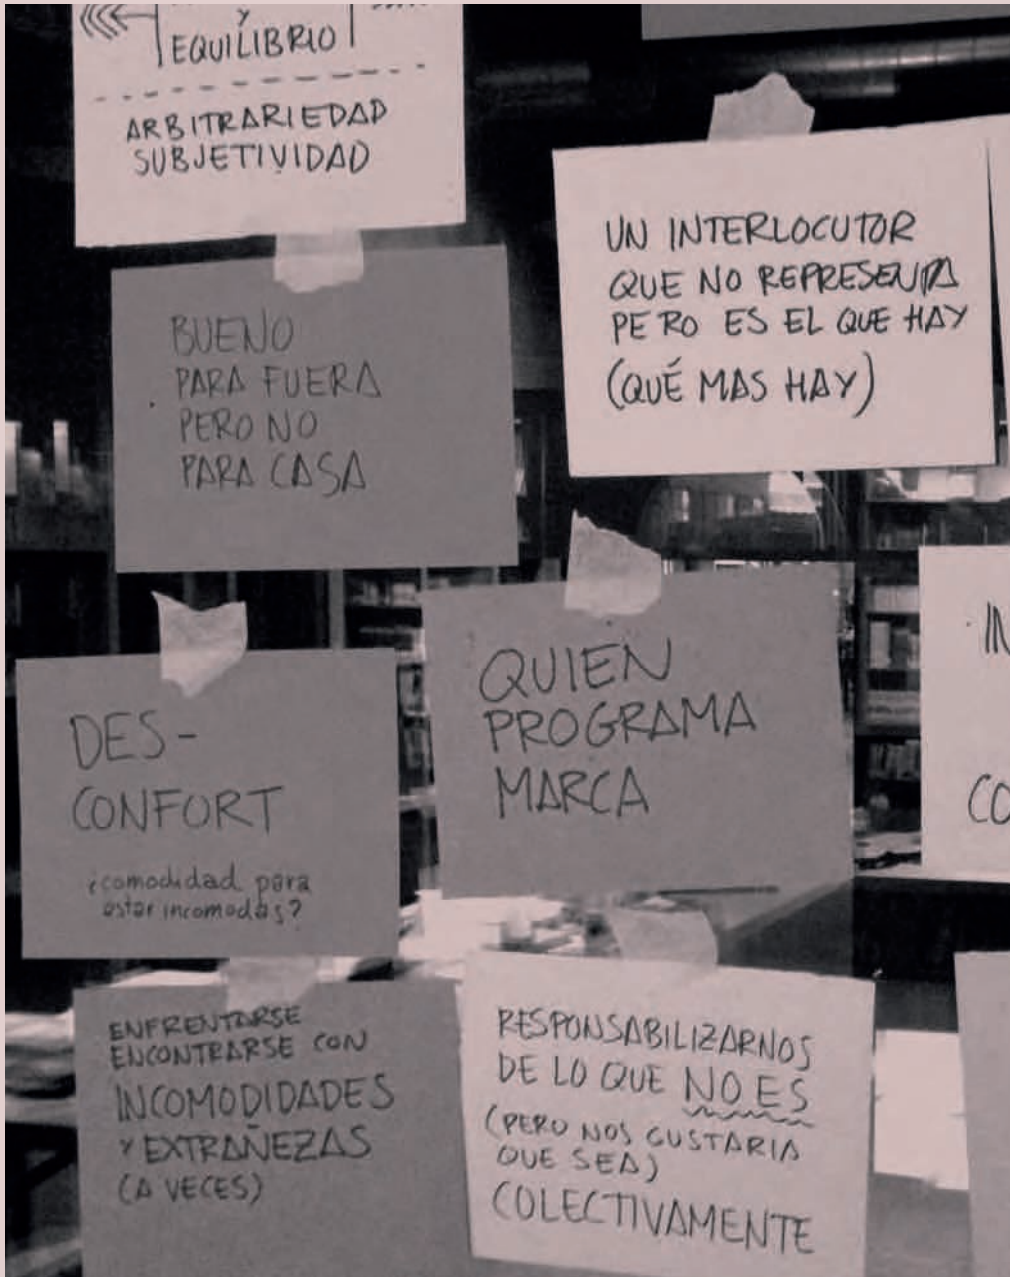 Y
EQUILIBRIO
ARBITRARIEDAD
SUBJETIVIDAD
UN INTERLOCUTOR
QUE NO REPRESENTA
PERO ES EL QUE HAY
(QUÉ MAS HAY)
BUENO
PARA FUERA
PERO NO
PARA CASA
QUIEN
PROGRAMA
MARCA
DES-
CONFORT
¿comodidad para
estar incomodas?
IN
CO
ENFRENTARSE
ENCONTRARSE CON
INCOMODIDADES
Y EXTRAÑEZAS
(A VECES)
RESPONSABILIZARNOS
DE LO QUE NO ES
(PERO NOS GUSTARIA
QUE SEA)
COLECTIVAMENTE